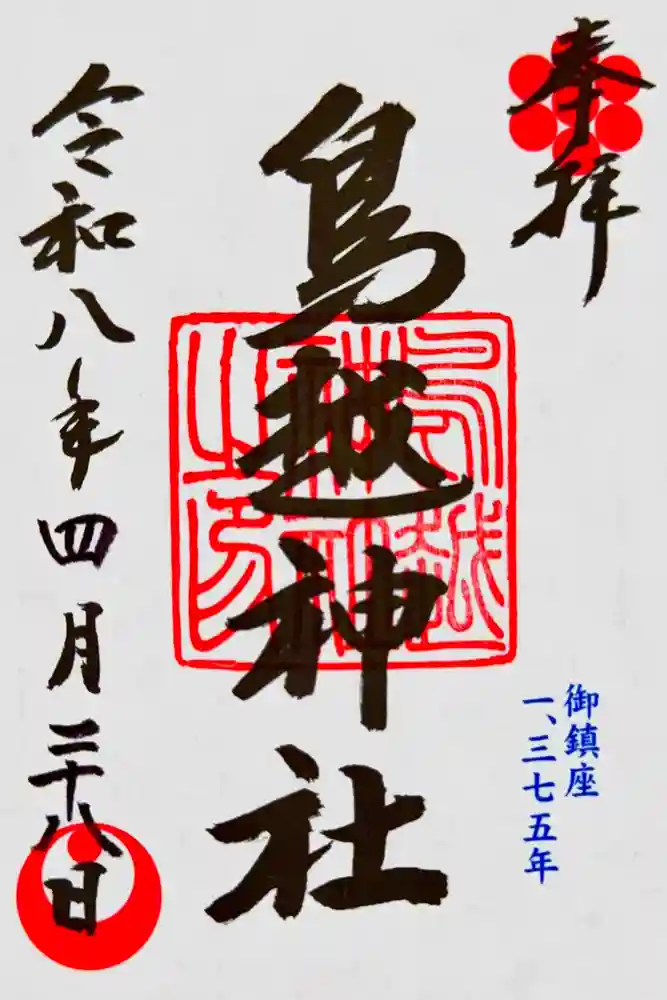 奉拝
御鎮座
一、三七五年
鳥越神社
鳥越神社之印
令和八年四月二十八日